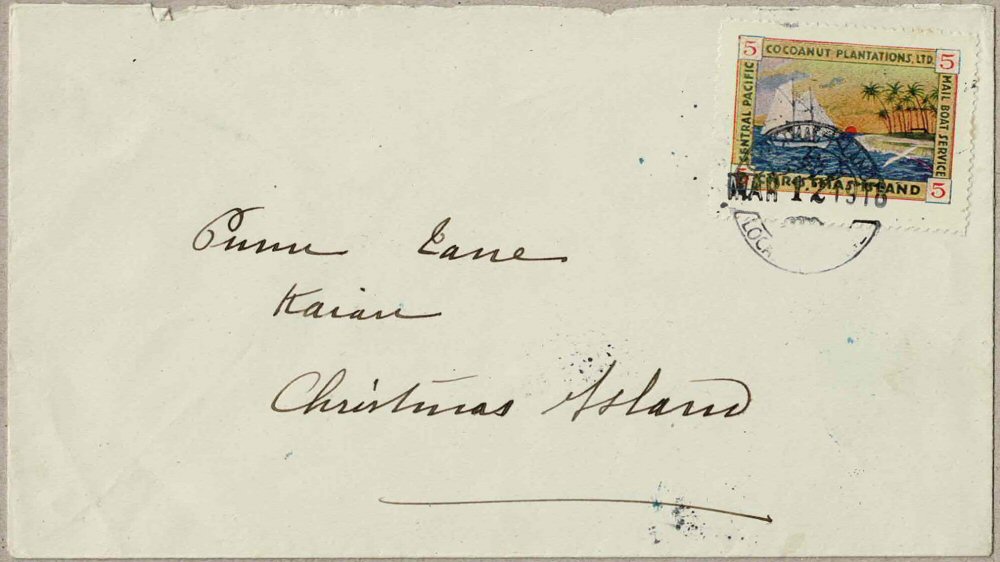 5 COCOANUT PLANTATIONS, LTD. 5
CENTRAL PACIFIC
MAIL BOAT SERVICE
CHRISTMAS ISLAND 5
MAR 12 1916
LOCA
Punu Eane
Kaian
Christmas Island